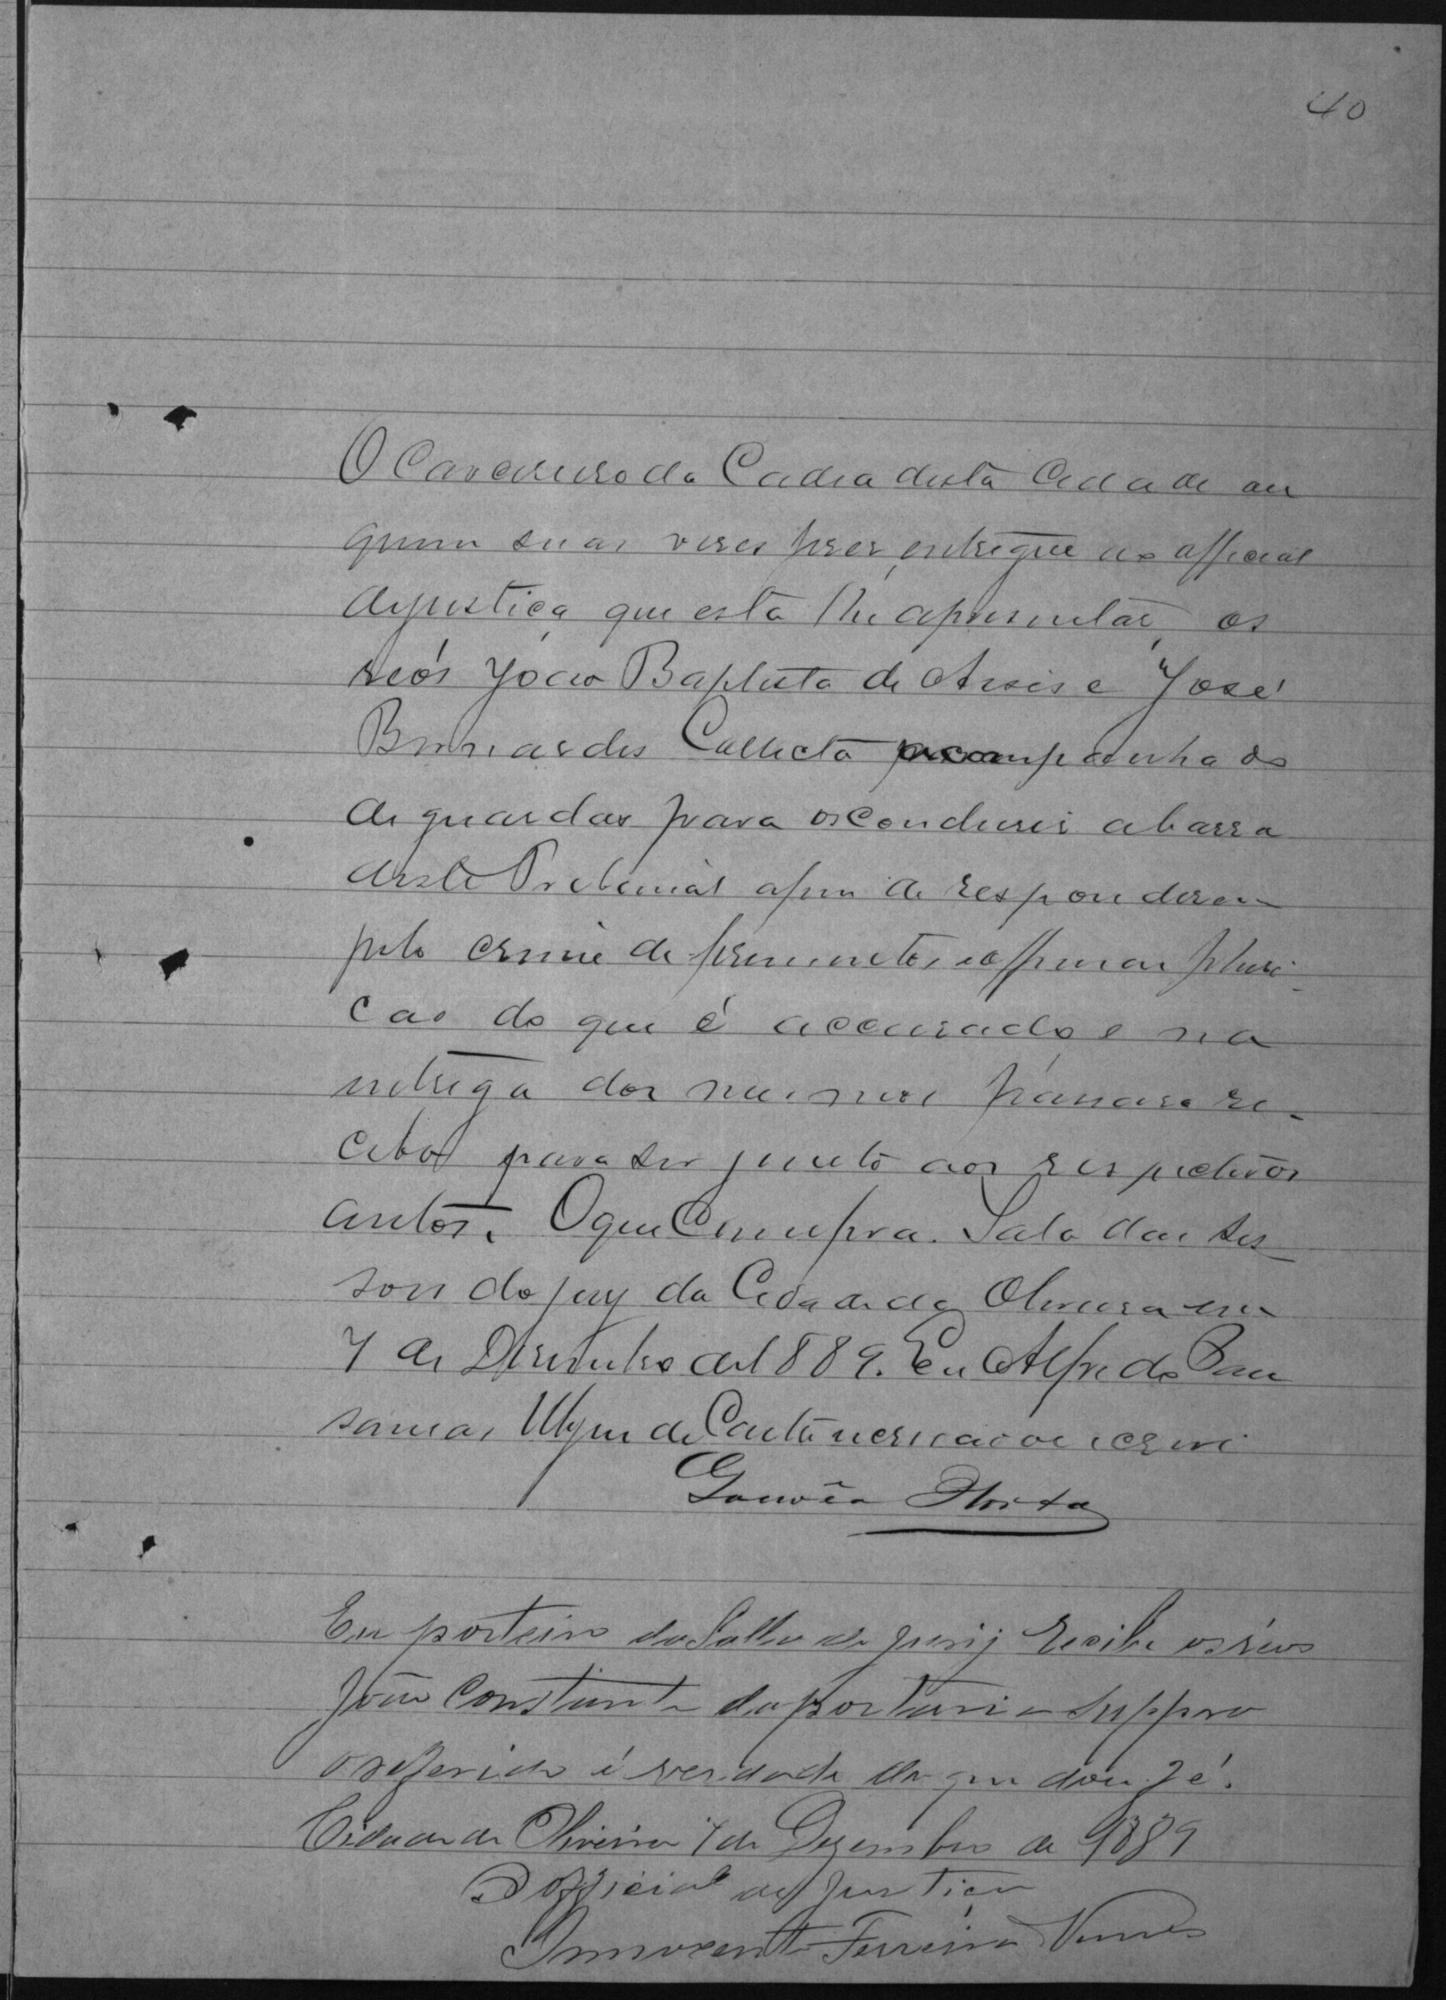 40
O Carcereiro da Cadea desta Cidade ou
quem suas veses fizer, entregue ao official
de justiça, que esta lhe apresentar, os
reós João Baptista de Assis e José
Bernardes Collecta acompanhado
de guardas para os condusir a barra
deste Tribunal afim de responderem
pelo crime de ferimentos e offensas phisi-
cas do que é accusado e na
entrega dos mesmos passará re-
cibo para ser junto aos respectivos
autos. O que Cumpra. Sala das Ses-
sões do jury da Cidade de Oliveira em
7 de Desembro de 1889. Eu Alfredo Pau
sanias
Gouvêa Horta
Eu porteiro da Salla do jurij Recibi os réus
João Constante da portaria suppra
o referido é verdade do que dou fé.
Cidade de Oliveira 7 de Dezembro de 1889
O official de Justiça
Innocente Ferreira Nunes